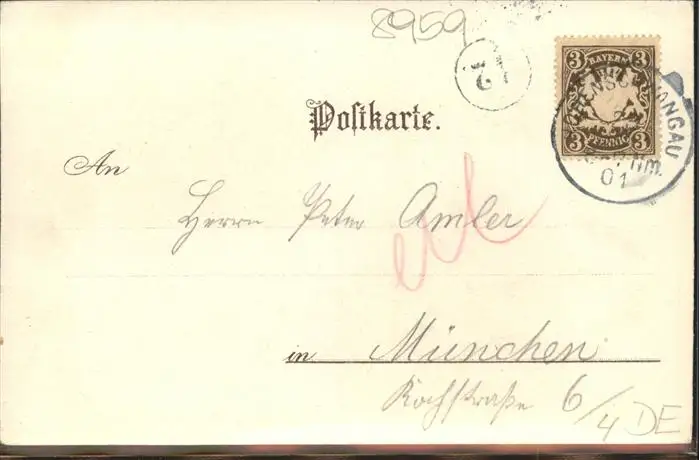 8959
12
3 BAYERN 3
3 PFENNIG 3
HOHENSCHWANGAU
Nm.
01
Postkarte.
An
Herrn Peter Amler
in München
Kochstraße 6/4
DE